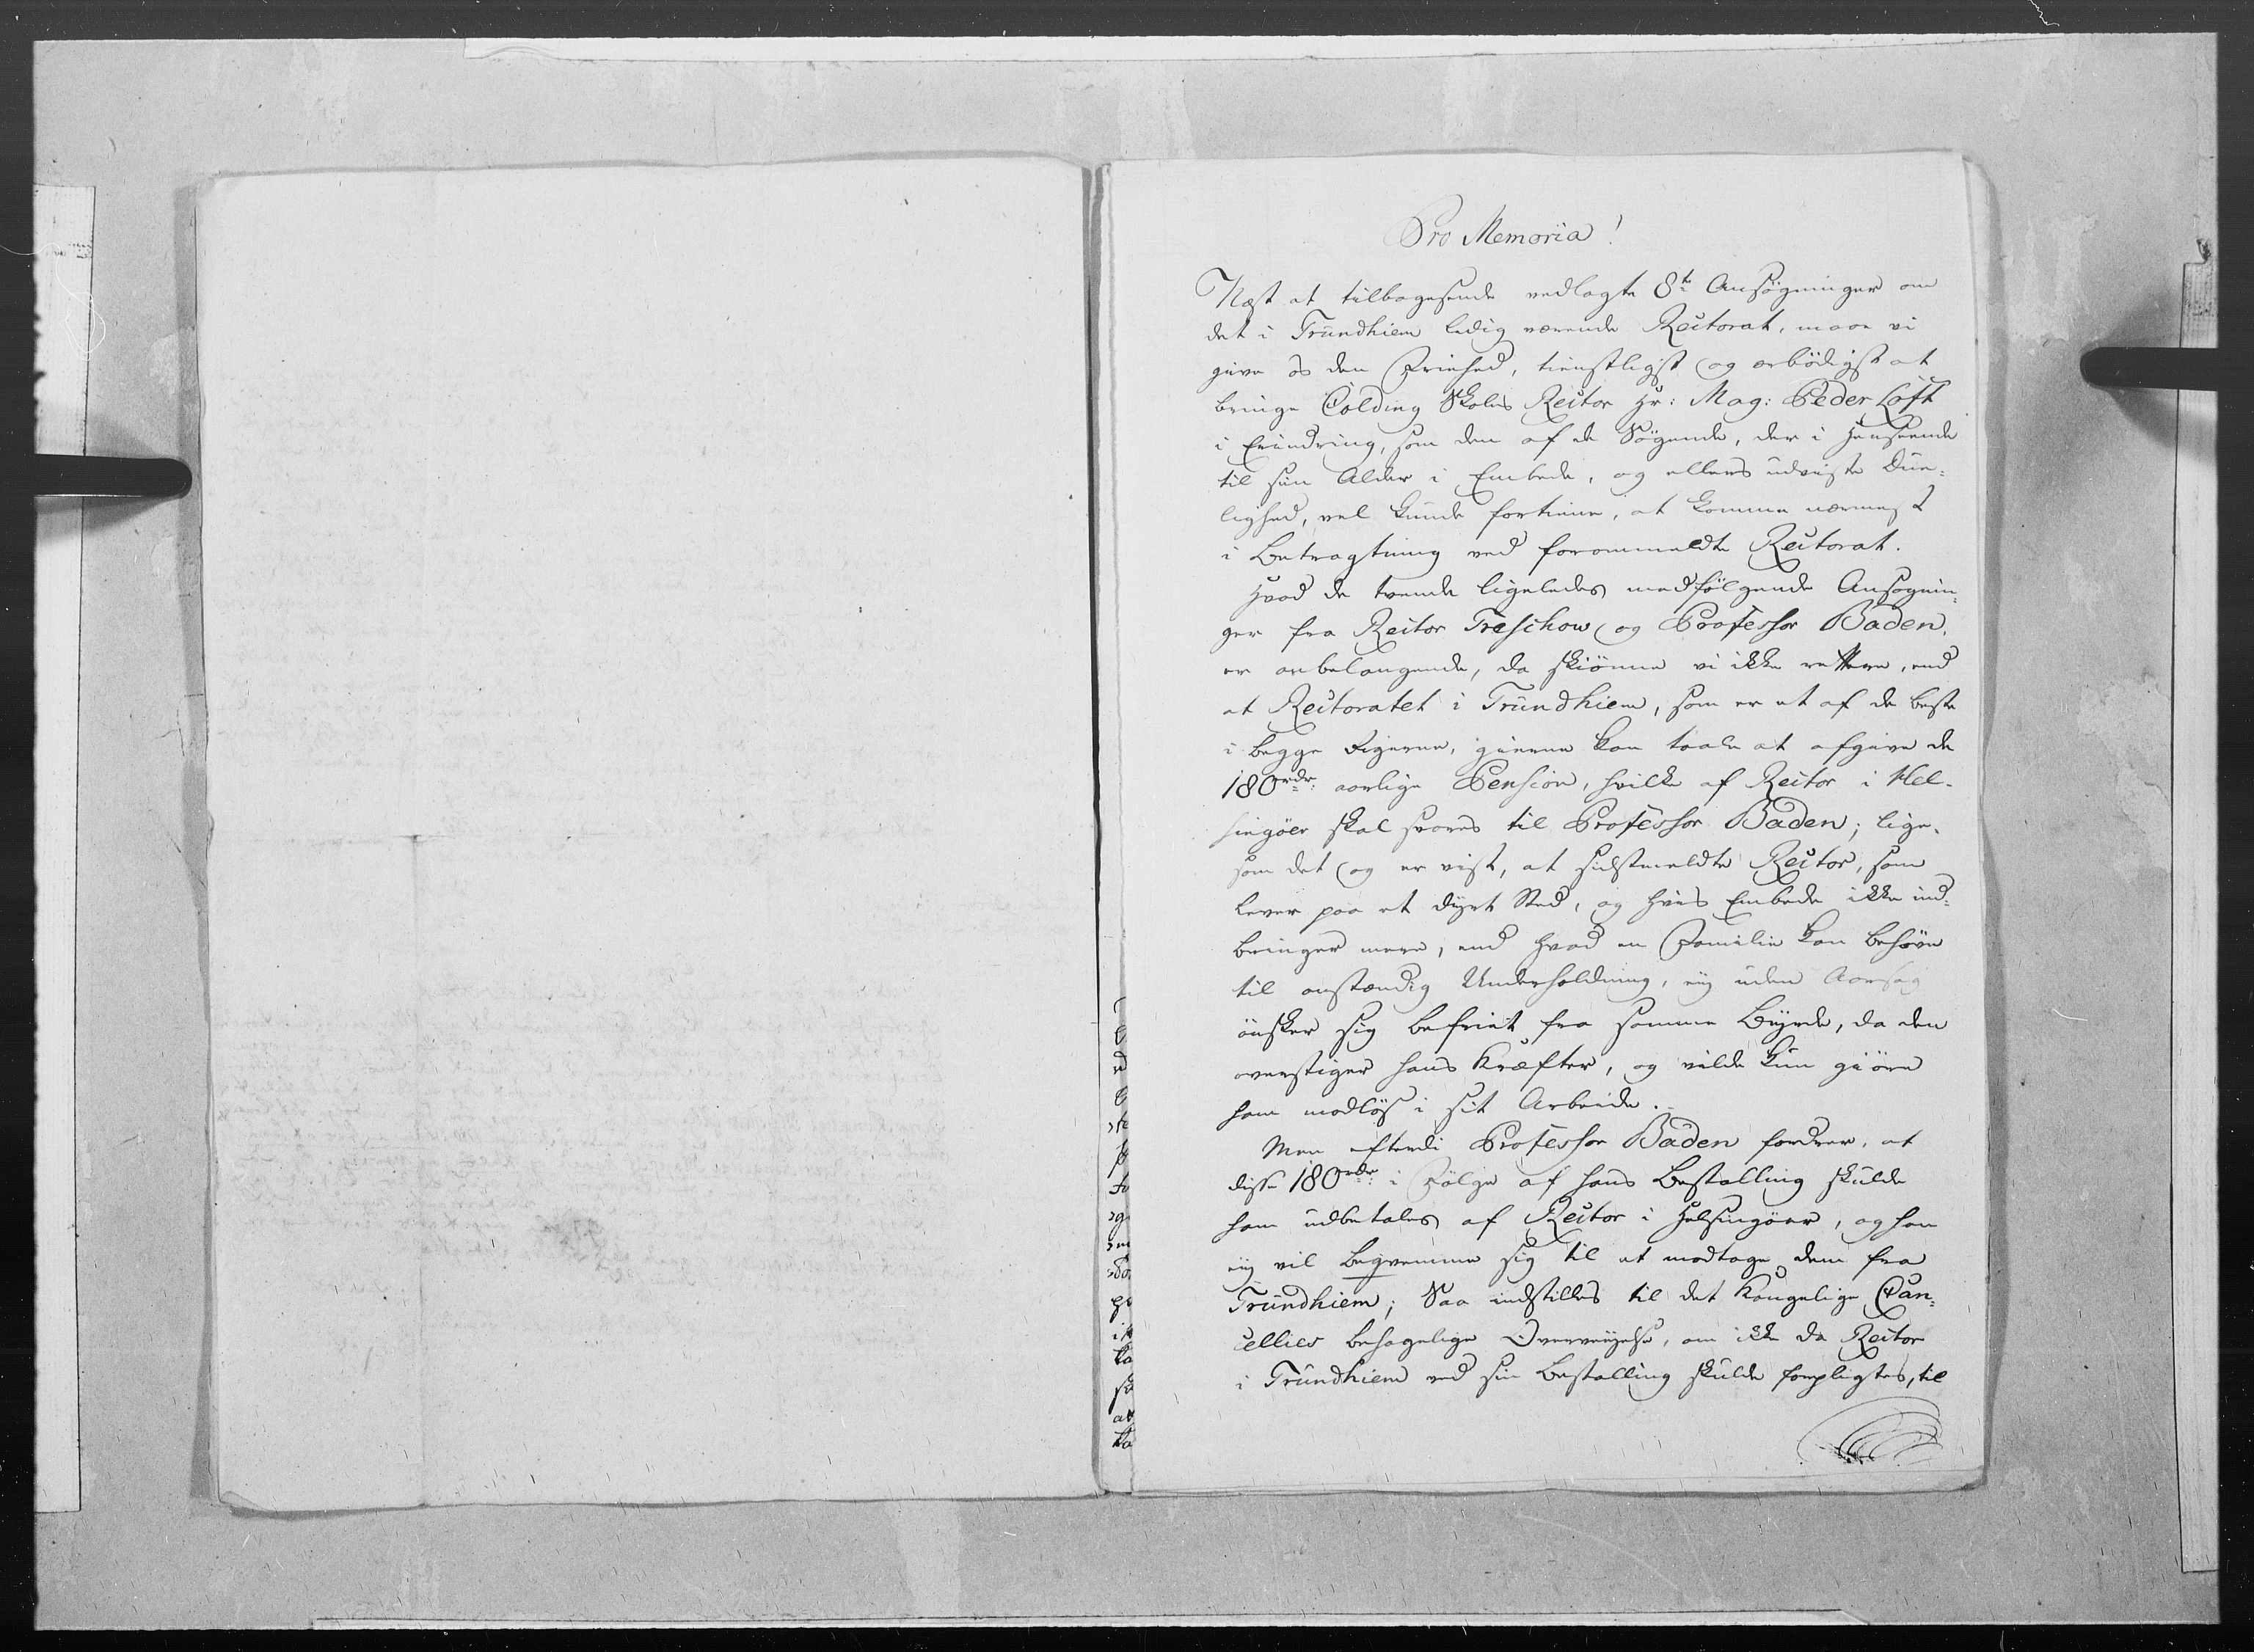 Pro Memoria!
Næst at tilbagesende vedlagte 8te Ansøgninger om
det i Trundhiem ledig værende Rectorat, maae vi
give os den Friehed, tienstligst og ærbödigst at
bringe Colding Skoles Rector Hr: Mag: Peder Loft
i Erindring, som den af de Søgende, der i Henseende
til sin Alder i Embede, og ellers udviiste Due-
lighed, vel kunde fortiene, at komme nærmest
i Betragtning ved forommeldte Rectorat.
Hvad de tvende ligeledes medfölgende Ansøgnin-
ger fra Rector Treschow og Professor Baden,
er anbelangende, da skiönne vi ikke rettere, end
at Rectoratet i Trundhiem, som er et af de beste
i begge Rigerne, gierne kan taale at afgive de
180 rdr: aarlige Pension, hvilke af Rector i Hel-
singöer skal svares til Professor Baden; lige-
som det og er vist, at sidstmeldte Rector, som
lever paa et dyrt Sted, og hvis Embede ikke ind-
bringer mere, end hvad en Familie kan behöve
til anstændig Underholdning, ey uden Aarsag
önsker sig befriet fra samme Byrde, da den
overstiger hans Kræfter, og vilde kun giöre
ham modlös i sit Arbeide.
Men efterdi Professor Baden fordrer, at
disse 180 rdr: i Fölge af hans Bestalling skulde
ham udbetales af Rector i Helsingöer, og han
ey vil beqvemme sig til at modtage dem fra
Trundhiem; Saa indstilles til det Kongelige Can-
cellies behagelige Overveyelse, om ikke da Rector
i Trundhiem ved sin Bestalling skulde forpligtes, til